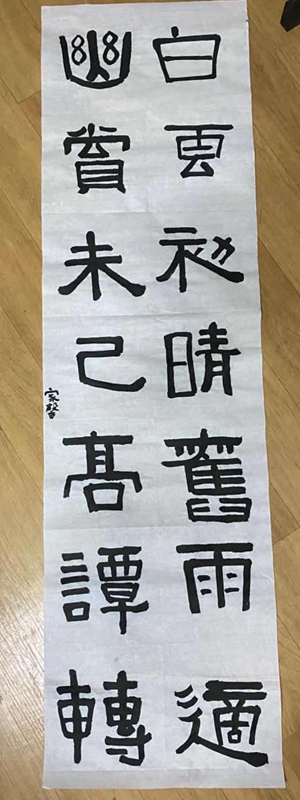 白雲初晴舊雨適
幽賞未已髙譚轉
家馨